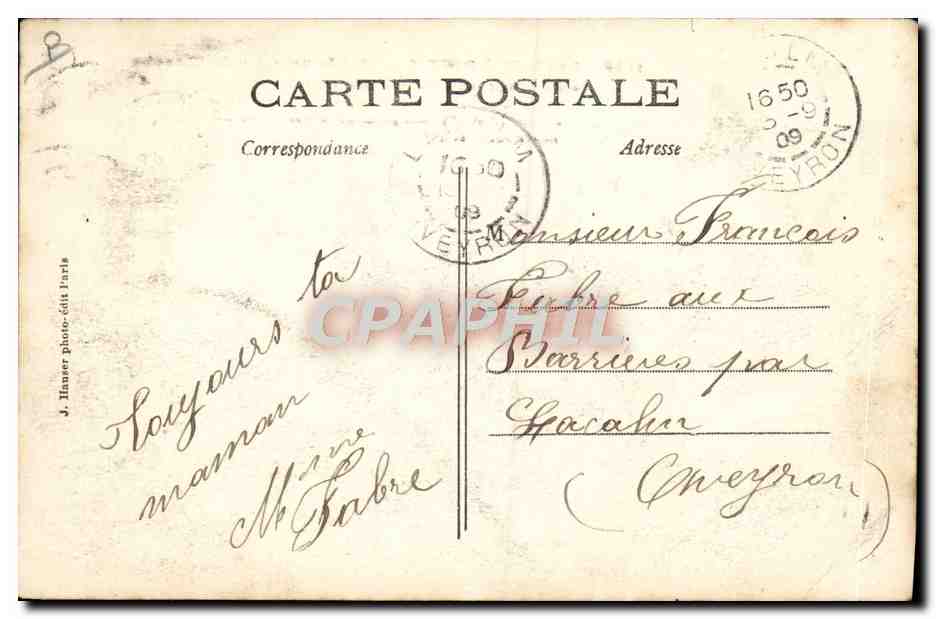 B
CARTE POSTALE
Correspondance
Adresse
16 50
-9
09
AVEYRON
16 50
09
AVEYRON
J. Hauser photo-édit Paris
Toujours ta
maman
Mme
Fabre
Monsieur Francois
Fabre aux
Barrières par
Lacalm
(Aveyron)
CPAPHIL